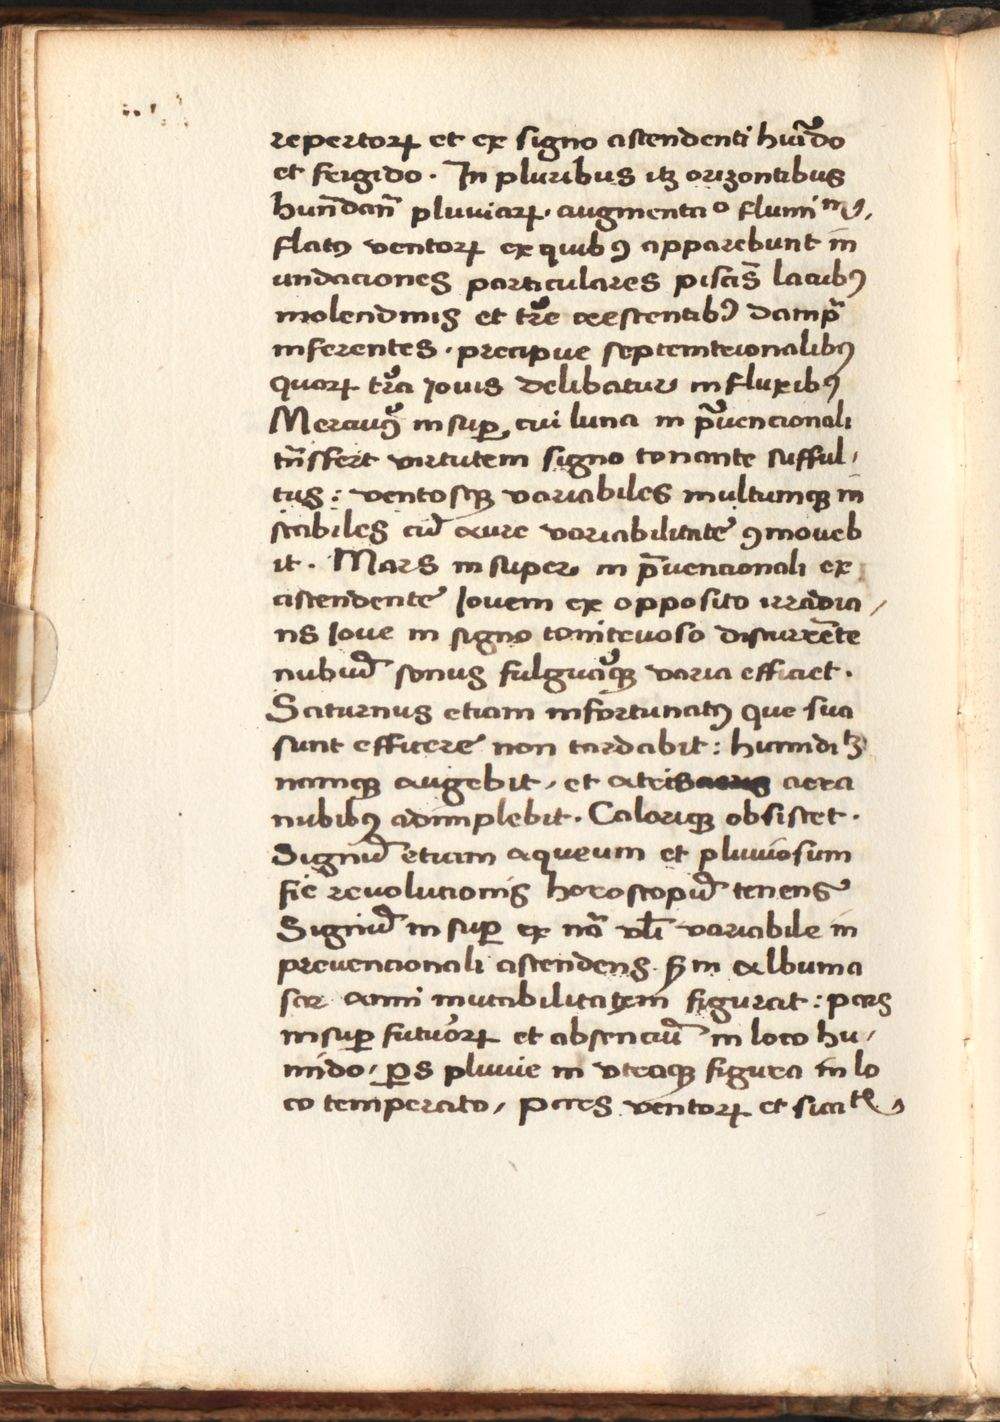 repertoꝝ et ex signo ascendenti huīdo
et frigido. In pluribus itꝫ orizontibus
pluuiaꝝ. augmenta
flatꝰ ventoꝝ ex quibꝰ apparebunt in
undaciones particulares lacubꝰ
molendinis et crescentibꝰ dampna
inferentes. precipue septemtrionalibꝰ
quoꝝ Iouis delibatur influxibꝰ
insuꝑ, cui luna in p̄uencionali
tn̄sfert virtutem signo tonante sufful,
tus: ventosqꝫ variabiles multumqꝫ in
stabiles cū aure variabilitate ꝯmoueb
it. Mars insuper in p̄uencionali ex
ascendente Iouem ex opposito irradia,
ns Ioue in signo tonitruoso discurrēte
nubiū sonus fulguraqꝫ varia efficiet.
Saturnus etiam infortunatꝰ que sua
sunt efficere non tardabit: humidi
namqꝫ augebit, et atris aera
nubibꝰ adimplebit. Caloriqꝫ obsistet.
Signū etiam aqueum et pluuiosum
sic reuolucionis horoscopiū tenens
Signū insuꝑ ex variabile in
preuencionali ascendens albuma
sar anni mutabilitatem figurat: pars
insuꝑ futuroꝝ et absenciū in loco hu,
mido, ꝑs pluuie in vtraqꝫ figura in lo
co temperato, pars ventoꝝ et